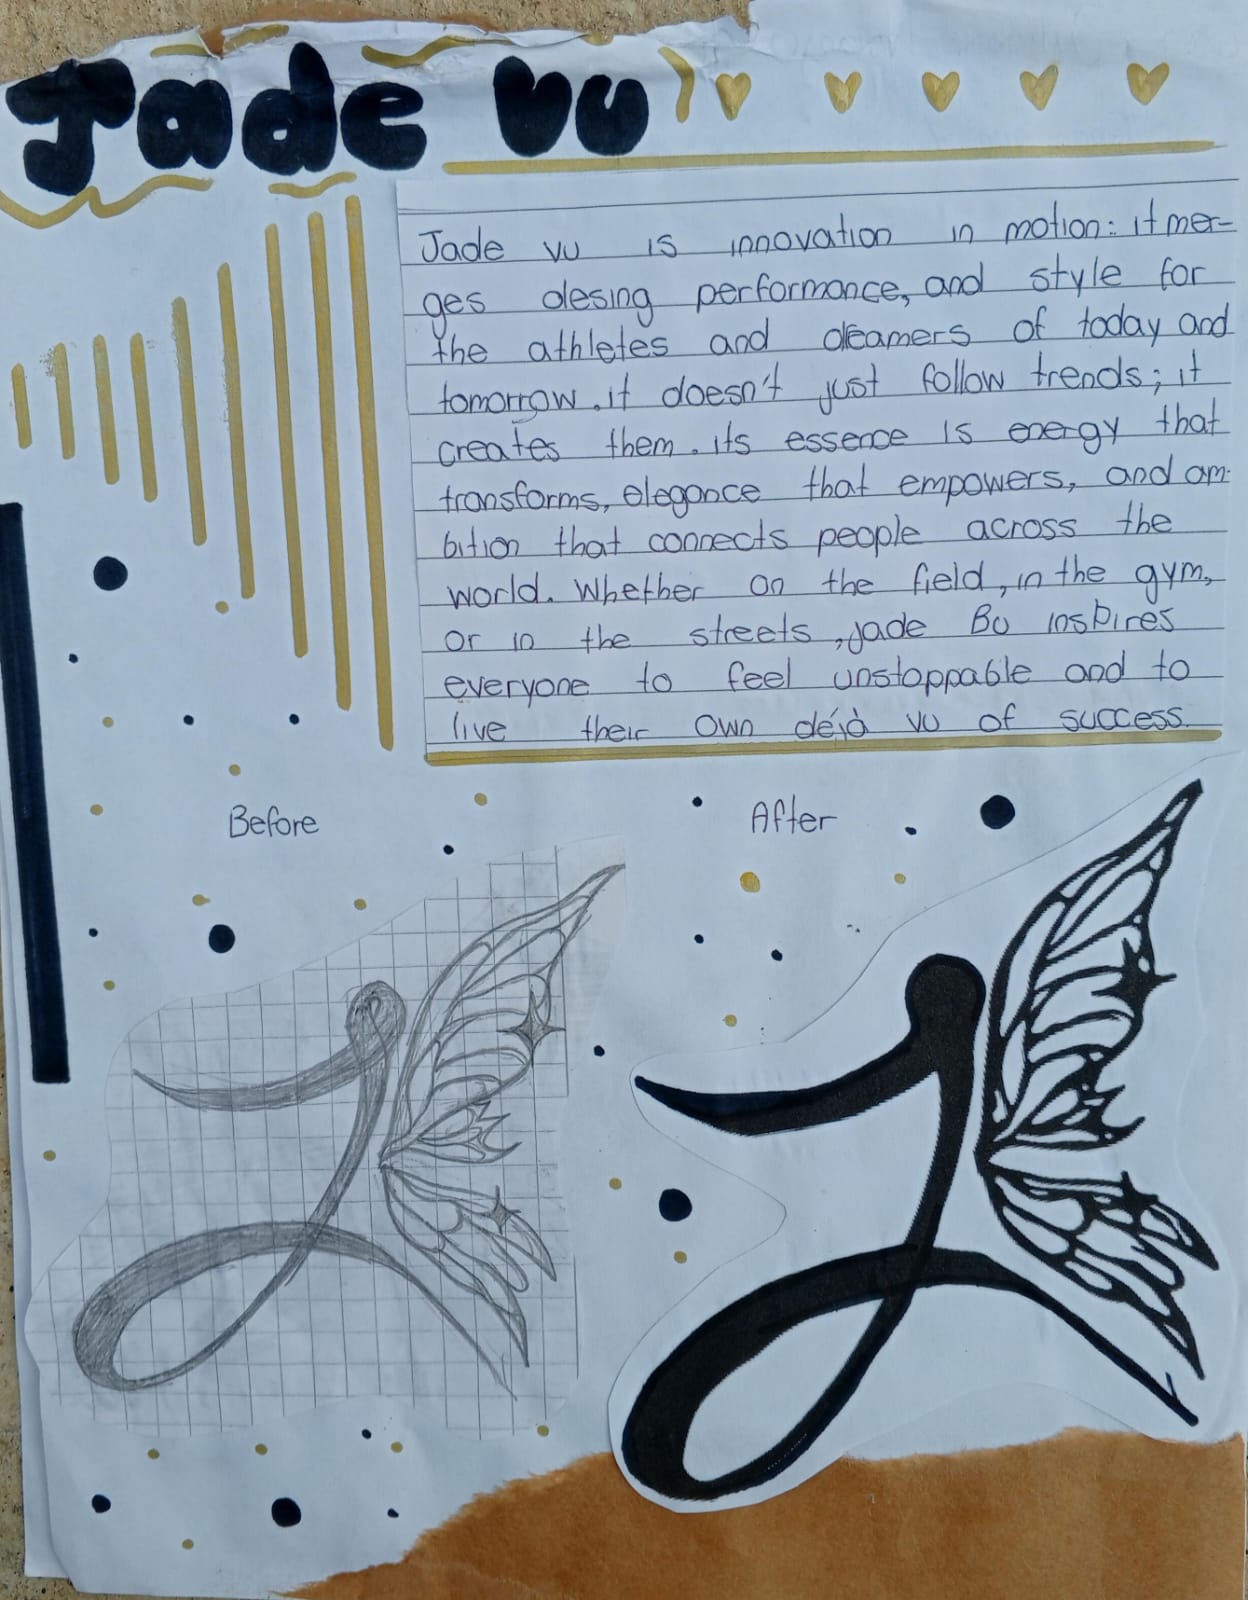 Jade vu
Jade vu is innovation in motion: it mer-
ges desing performance, and style for
the athletes and dreamers of today and
tomorrow. it doesn't just follow trends; it
creates them. its essence is energy that
transforms, elegance that empowers, and am-
bition that connects people across the
world. Whether on the field, in the gym,
or in the streets, jade Bu inspires
everyone to feel unstoppable and to
live their own déjà vu of success.
Before
After